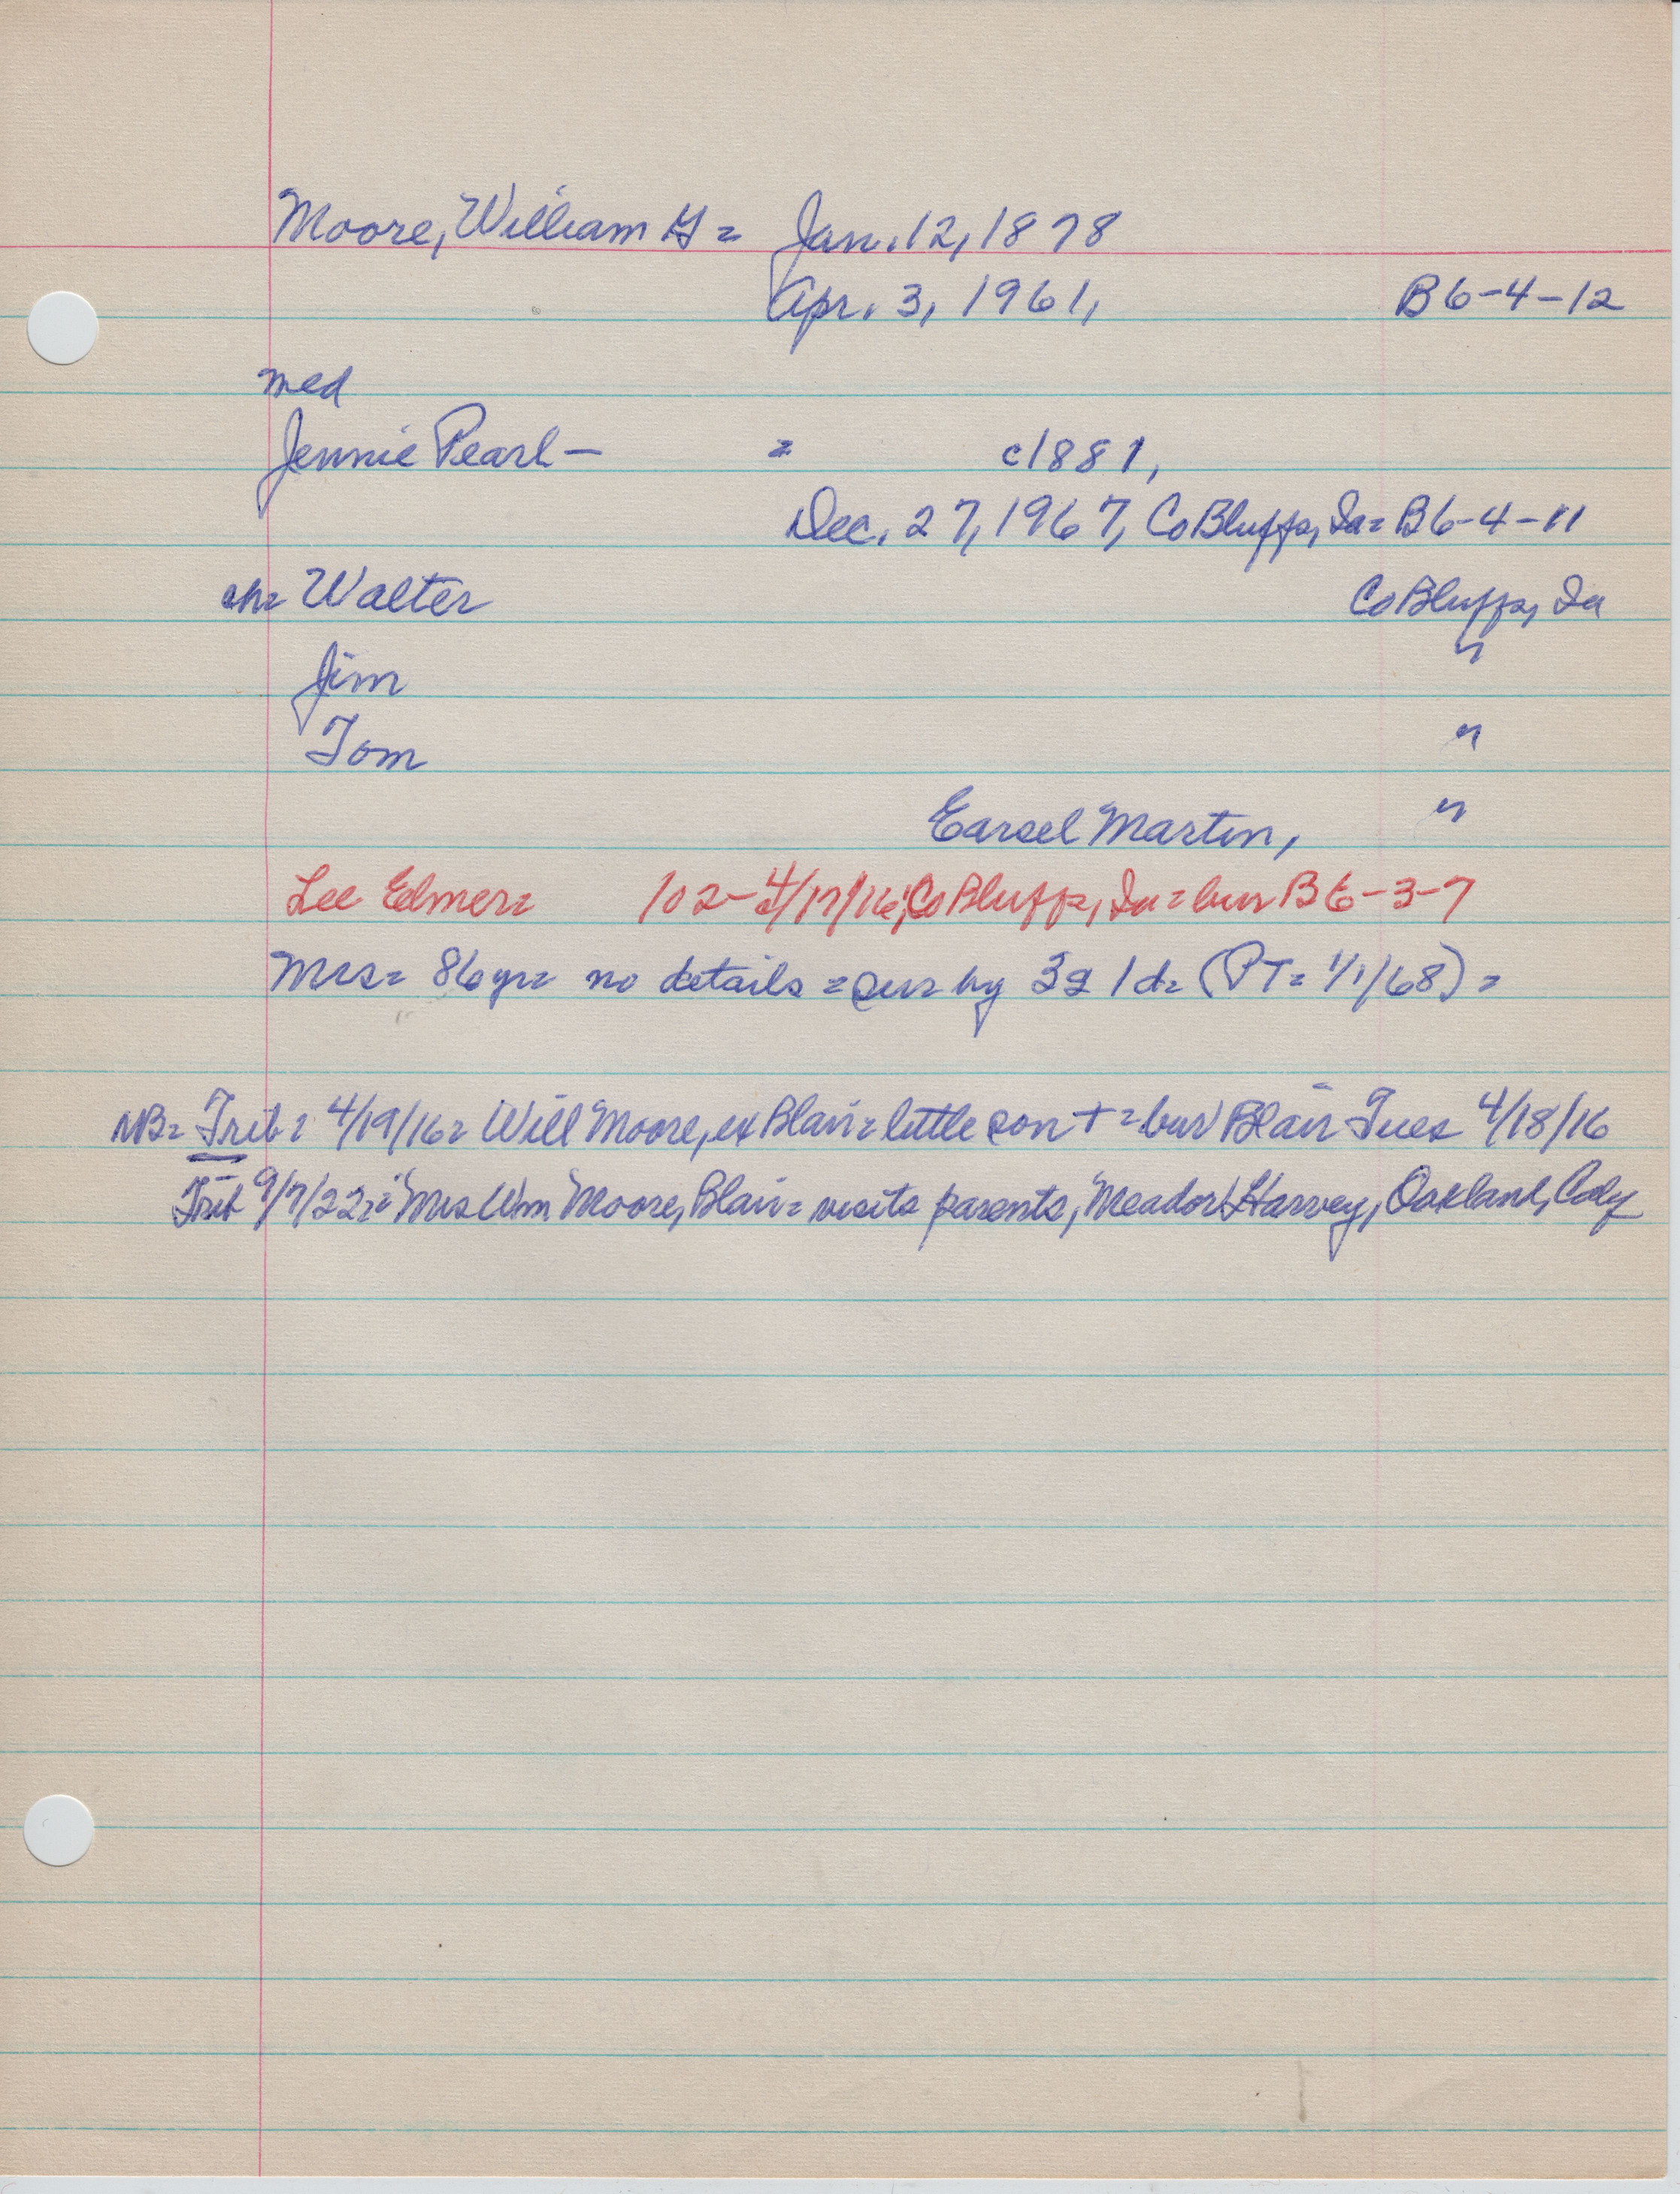 Moore, William G = Jan. 12, 1878
Apr. 3, 1961, B6-4-12
med
Jennie Pearl - = c1881,
Dec. 27, 1967, Co Bluffs, Ia = B6-4-11
ch= Walter Co Bluffs, Ia
Jim "
Tom "
Earsel Martin, "
Lee Elmer= 102-4/17/16, Co Bluffs, Ia = bur B6-3-7
Mrs= 86 yr= no details = sur by 3s 1d= (PT= 1/1/68) =
NB= Trib= 4/19/16= Will Moore, ex Blair= little son + = bur Blair Tues 4/18/16
Trib 9/7/22= Mrs Wm Moore, Blair= visits parents, Meador Harvey, Oakland,